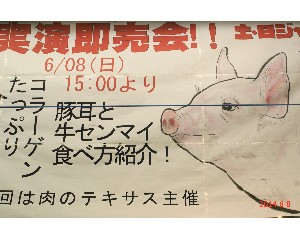 実演即売会!!
土・日ジャ
6/08(日)
15:00より
コラーゲン
たっぷり
豚耳と
牛センマイ
食べ方紹介!
回は肉のテキサス主催
2014 6 8